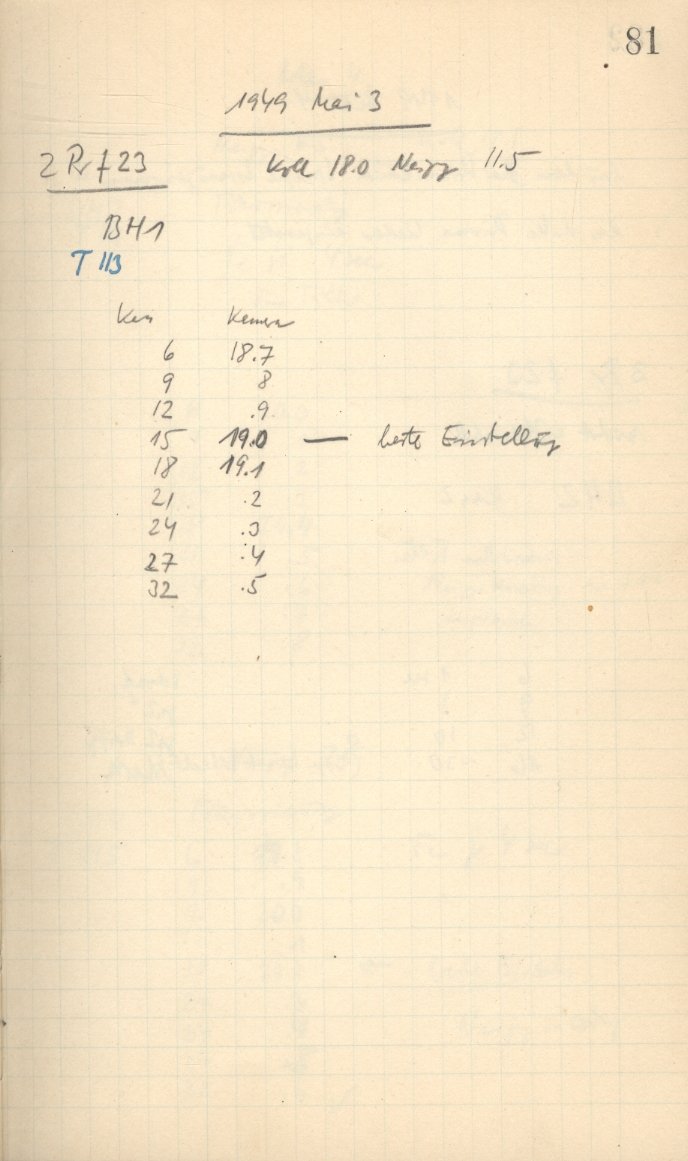 81
1949 Mai 3
2 Pr f 23 Koll 18.0 Neigg 11.5
BH1
T 113
Kamera
6 18.7
9 8
12 .9
15 19.0 — beste Einstellg
18 19.1
21 .2
24 .3
27 .4
32 .5